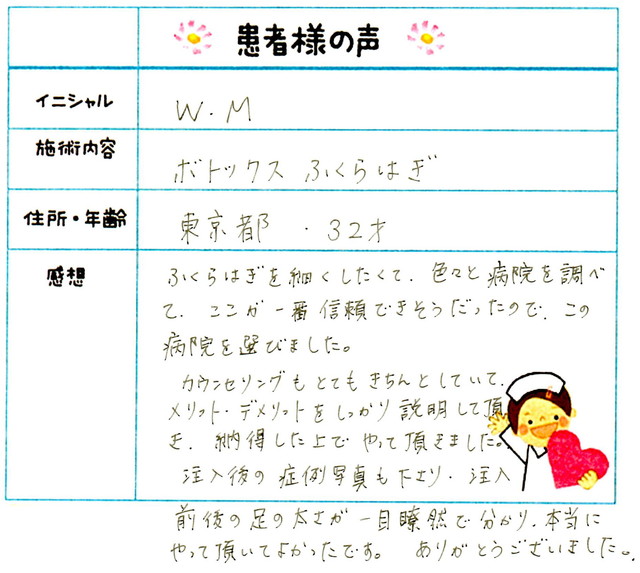 患者様の声
イニシャル W.M
施術内容 ボトックス ふくらはぎ
住所・年齢 東京都 ・32才
感想 ふくらはぎを細くしたくて、色々と病院を調べ
て、ここが一番信頼できそうだったので、この
病院を選びました。
カウンセリングもとてもきちんとしていて、
メリット・デメリットをしっかり説明して頂
き、納得した上でやって頂きました。
注入後の症例写真も下さり、注入
前後の足の太さが一目瞭然で分かり、本当に
やって頂いてよかったです。 ありがとうございました。